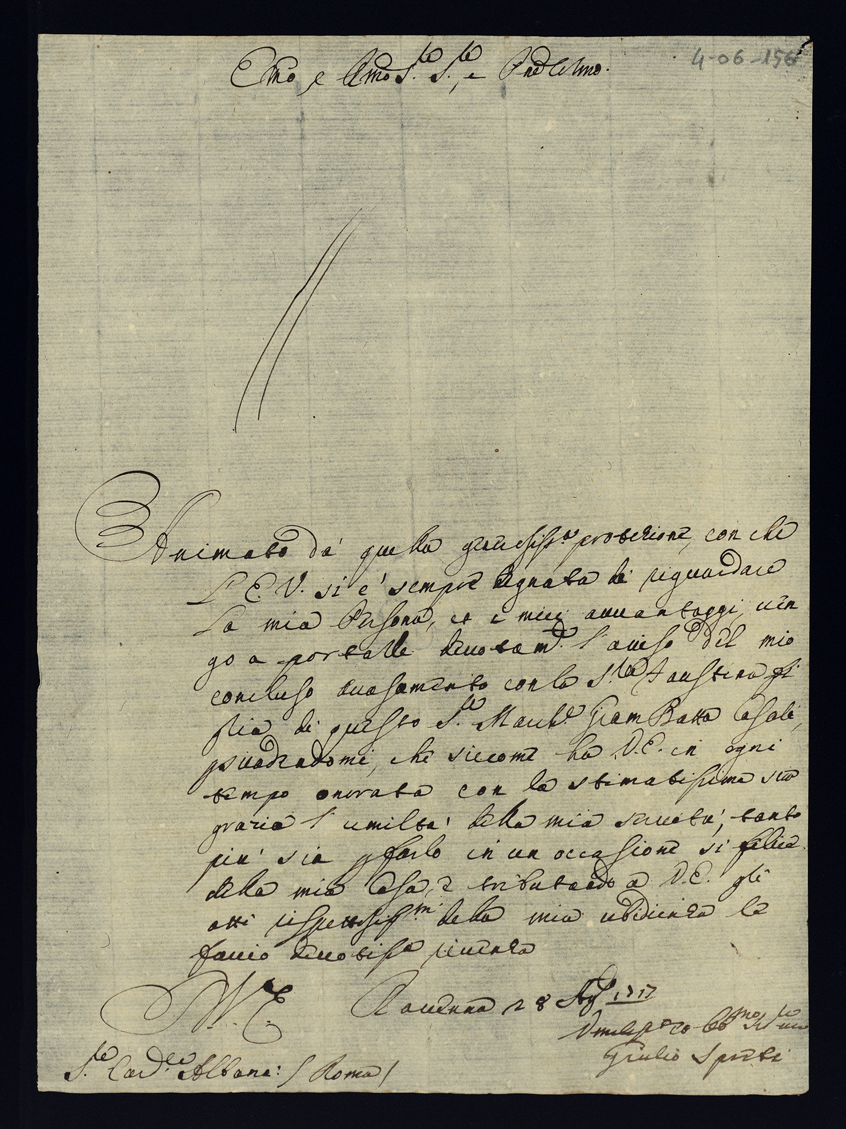 4-06-156
Emo, e Rmo Sre Sre, e Pne Colmo.
Animato da quella generosissa protezione, con che
l'E.V. si è sempre degnata di riguardare
la mia Persona, et i miei avvantaggi, ven
go a portarle devotamte l'avviso del mio
concluso accasamento con la Sra Faustina fi
glia di questo Sre March. GiamBatta Casali,
psuadendomi, che siccome ha V.E. in ogni
tempo onorata con la stimatissima sua
grazia l'umiltà della mia servitù, tanto
più sia p farlo in un occassione sì felice
della mia Casa, e tributando a V.E. gli
atti rispettosissmi della mia ubidienza le
faccio devotissa riverenza
V. E. Ravenna 28 1717
Giulio Spreti
Sre Cardle Albani: / Roma /